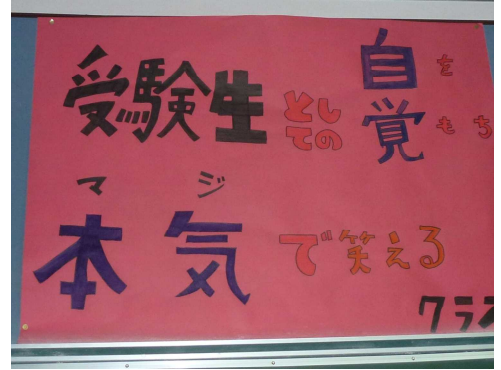 受験生としての自覚をもち
マジ
本気で笑える
クラス